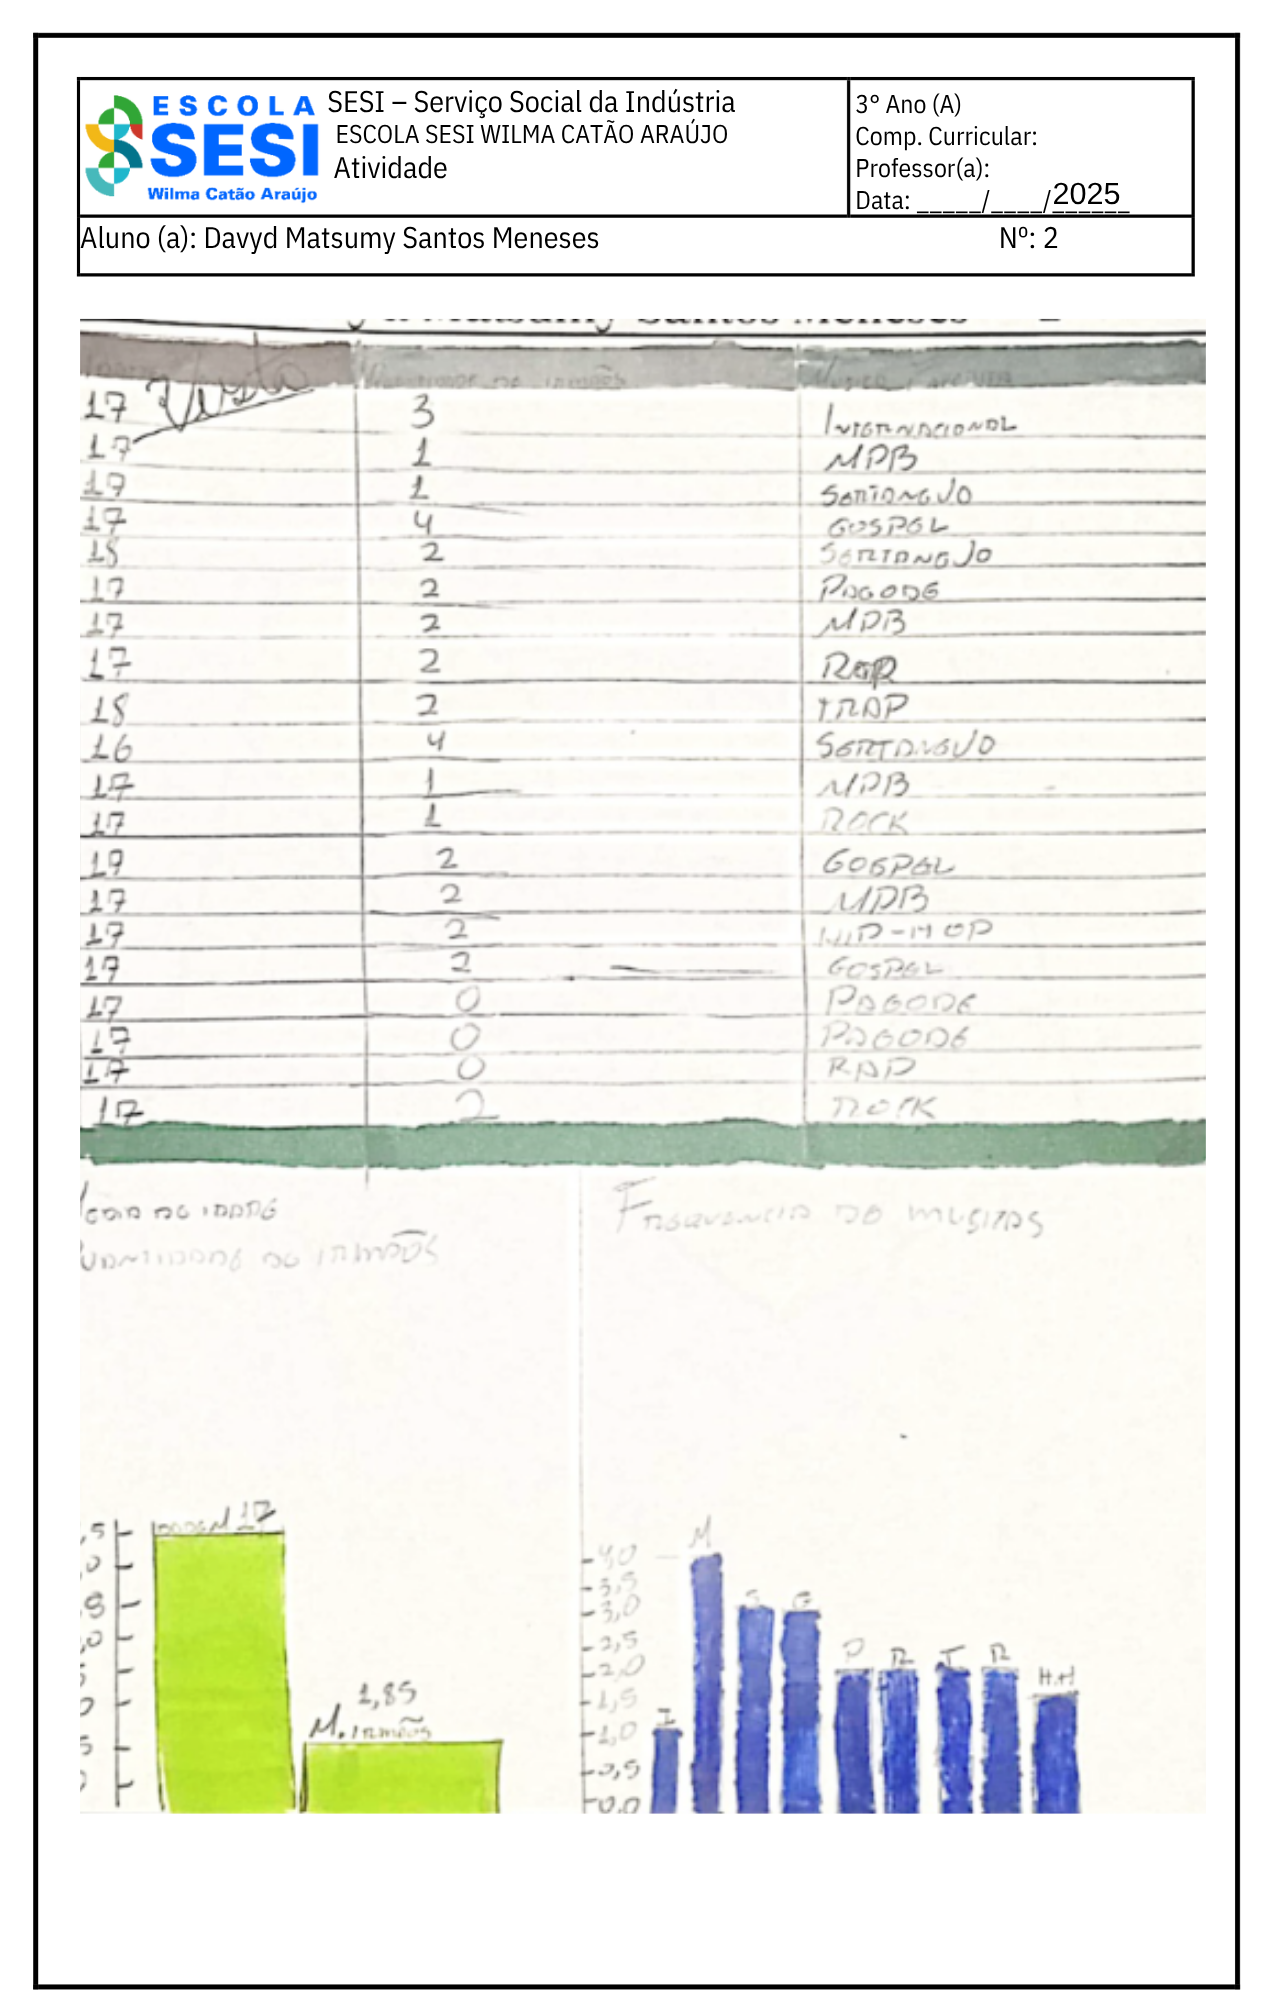 ESCOLA
SESI
Wilma Catão Araújo
SESI – Serviço Social da Indústria
ESCOLA SESI WILMA CATÃO ARAÚJO
Atividade
3° Ano (A)
Comp. Curricular:
Professor(a):
Data: _____/____/2025
Aluno (a): Davyd Matsumy Santos Meneses Nº: 2
Matsumy Santos Meneses
Visto
Quantidade de irmãos
17 3 Internacional
17 1 MPB
17 1 Sertanejo
17 4 Gospel
18 2 Sertanejo
17 2 Pagode
17 2 MPB
17 2 Rap
18 2 Trap
16 4 Sertanejo
17 1 MPB
17 1 Rock
17 2 Gospel
17 2 MPB
17 2 Hip-Hop
17 2 Gospel
17 0 Pagode
17 0 Pagode
17 0 Rap
17 2 Rock
de idade
de irmãos
Frequencia de musicas
17
1,85
M. irmãos
M
S
G
P
R
T
R
H.H
I
4,0
3,5
3,0
2,5
2,0
1,5
1,0
0,5
0,0